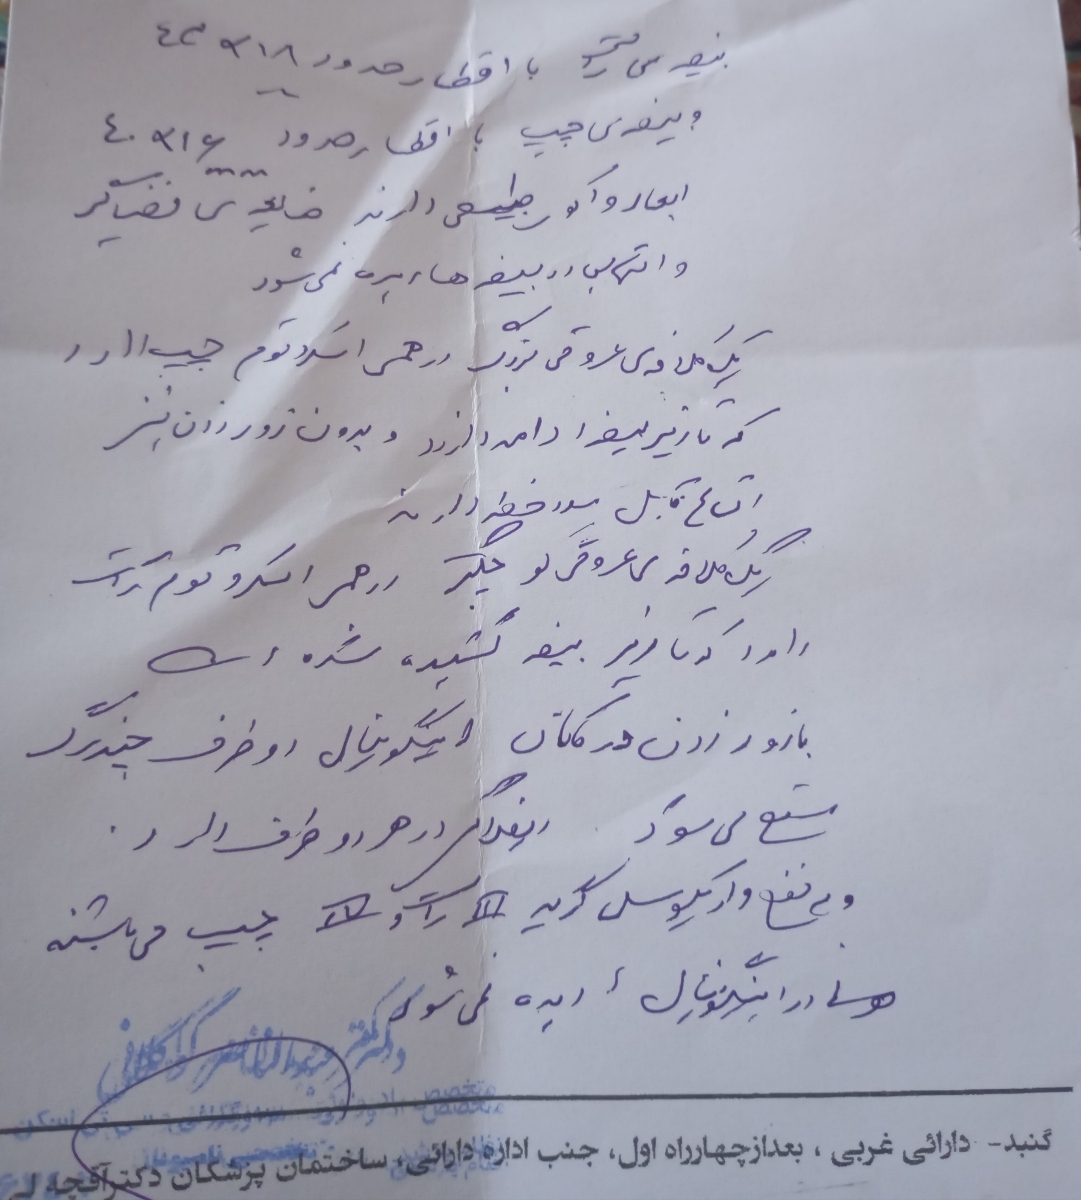 بیضه‌ی راست با اقطار حدود ۱۸×۴۳
و بیضه‌ی چپ با اقطار حدود ۱۶×۴۰ mm
ابعاد و اکوی طبیعی دارند ضایعه‌ی فضاگیر
و التهاب در بیضه‌ها دیده نمی‌شود
یک کلافه‌ی عروقی بزرگ در همی اسکروتوم چپ دارد
که تا زیر بیضه ادامه دارد و بدون زور زدن نیز
اتساع قابل ملاحظه دارند
یک کلافه‌ی عروقی کوچکتر در همی اسکروتوم راست
دارد که تا زیر بیضه کشیده شده است
با زور زدن در کانال اینگوینال دو طرف چند رگ
متسع می‌شود رفلاکس در هر دو طرف دارد.
و به نفع واریکوسل گرید III راست و IV چپ می‌باشند
هرنی در اینگوینال دیده نمی‌شود
دکتر
متخصص رادیولوژی
گنبد- دارائی غربی ، بعدازچهارراه اول، جنب اداره دارائی، ساختمان پزشکان دکترآقچه لی